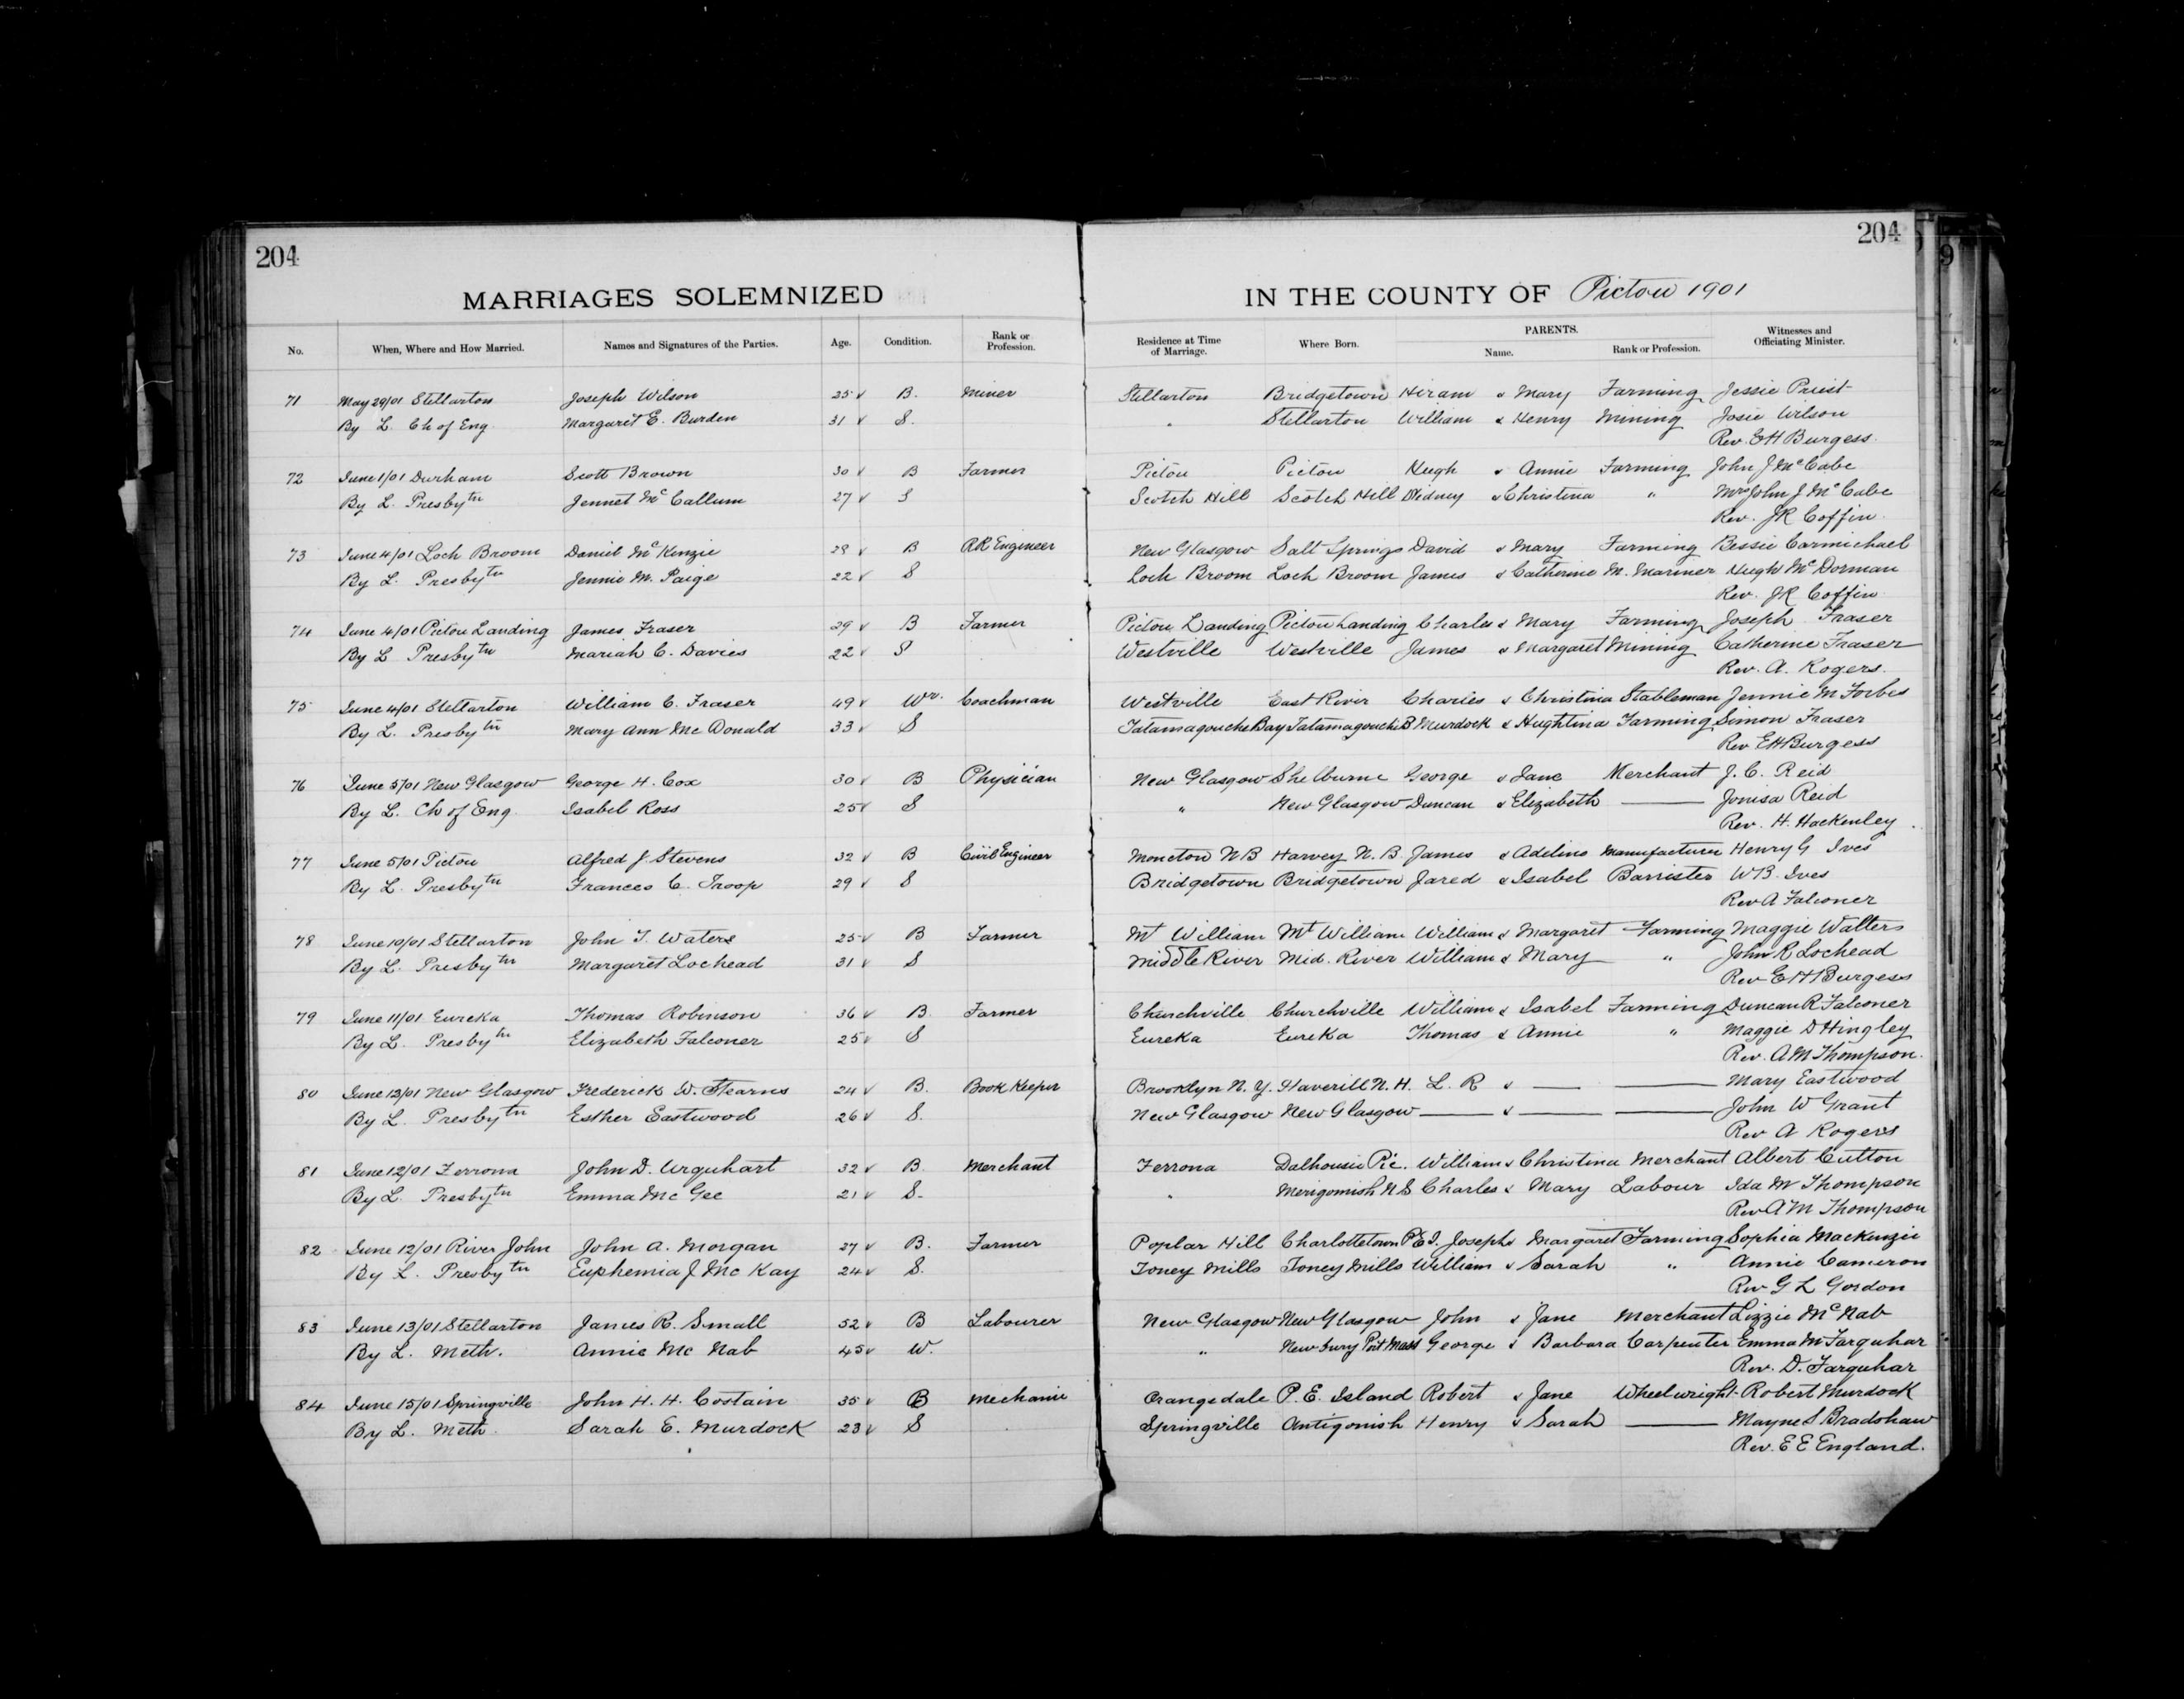 204
204
9
MARRIAGES SOLEMNIZED IN THE COUNTY OF Pictou 1901
No. When, Where and How Married. Names and Signatures of the Parties. Age. Condition. Rank or Profession. Residence at Time of Marriage. Where Born. PARENTS. Name. Rank or Profession. Witnesses and Officiating Minister.
71 May 29/01 Stellarton Joseph Wilson 25 ✓ B. Miner Stellarton Bridgetown Hiram & Mary Farming Jessie Priest
By L. Ch of Eng. Margaret E. Burden 31 ✓ S. " Stellarton William & Henry Mining Josie Wilson
Rev. E H Burgess.
72 June 1/01 Durham Scott Brown 30 ✓ B Farmer Pictou Pictou Hugh & Annie Farming John J McCabe
By L. Presbytn Jennet McCallum 27 ✓ S Scotch Hill Scotch Hill Sidney & Christina " Mrs John J McCabe
Rev. JR Coffin.
73 June 4/01 Loch Broom Daniel McKenzie 28 ✓ B RR Engineer New Glasgow Salt Springs David & Mary Farming Bessie Carmichael
By L. Presbytn Jennie M. Paige 22 ✓ S Loch Broom Loch Broom James & Catherine M. Mariner Hugh McDorman
Rev. JR Coffin
74 June 4/01 Pictou Landing James Fraser 29 ✓ B Farmer Pictou Landing Pictou Landing Charles & Mary Farming Joseph Fraser
By L Presbytn Mariah C. Davies 22 ✓ S Westville Westville James & Margaret Mining Catherine Fraser
Rev. A. Rogers.
75 June 4/01 Stellarton William C. Fraser 49 ✓ Wr. Coachman Westville East River Charles & Christina Stableman Jennie M Forbes
By L. Presbytn Mary Ann McDonald 33 ✓ S Tatamagouche Bay Tatamagouche B Murdock & Hughtina Farming Simon Fraser
Rev EH Burgess
76 June 5/01 New Glasgow George H. Cox 30 ✓ B Physician New Glasgow Shelburne George & Jane Merchant J. C. Reid
By L. Ch of Eng. Isabel Ross 25 ✓ S " New Glasgow Duncan & Elizabeth — Jonisa Reid
Rev. H. Hackenley
77 June 5/01 Pictou Alfred J. Stevens 32 ✓ B Civil Engineer Moncton N B Harvey N. B. James & Adeline Manufacturer Henry G Ives
By L. Presbytn Frances C. Troop 29 ✓ S Bridgetown Bridgetown Jared & Isabel Barrister WB. Ives
Rev A Falconer
78 June 10/01 Stellarton John T. Waters 25 ✓ B Farmer Mt William Mt William William & Margaret Farming Maggie Walters
By L. Presbytn Margaret Lochead 31 ✓ S Middle River Mid. River William & Mary " John R Lochead
Rev E H Burgess
79 June 11/01 Eureka Thomas Robinson 36 ✓ B. Farmer Churchville Churchville William & Isabel Farming Duncan R Falconer
By L. Presbytn Elizabeth Falconer 25 ✓ S Eureka Eureka Thomas & Annie " Maggie D Hingley
Rev. A M Thompson.
80 June 12/01 New Glasgow Frederick W. Stearns 24 ✓ B. Book Keeper Brooklyn N. Y. Haverill N. H. L. R & — — Mary Eastwood
By L. Presbytn Esther Eastwood 26 ✓ S. New Glasgow New Glasgow — & — — John W Grant
Rev A Rogers
81 June 12/01 Ferrona John D. Urquhart 32 ✓ B. Merchant Ferrona Dalhousie Pic. William & Christina Merchant Albert Cutton
By L. Presbytn Emma McGee 21 ✓ S. " Merigomish N S Charles & Mary Labour Ida M Thompson
Rev A M Thompson
82 June 12/01 River John John A. Morgan 27 ✓ B. Farmer Poplar Hill Charlottetown P E I. Joseph & Margaret Farming Sophia Mackenzie
By L. Presbytn Euphemia J McKay 24 ✓ S. Toney Mills Toney Mills William & Sarah " Annie Cameron
Rev G L Gordon
83 June 13/01 Stellarton James R. Small 52 ✓ B Labourer New Glasgow New Glasgow John & Jane Merchant Lizzie McNab
By L. Meth. Annie McNab 45 ✓ W. " New bury Port Mass George & Barbara Carpenter Emma M Farquhar
Rev. D. Farquhar
84 June 15/01 Springville John H. H. Costain 35 ✓ B Mechanic Orangedale P. E. Island Robert & Jane Wheelwright Robert Murdock
By L. Meth. Sarah E. Murdock 23 ✓ S Springville Antigonish Henry & Sarah — Mayne S Bradshaw
Rev. E E England.